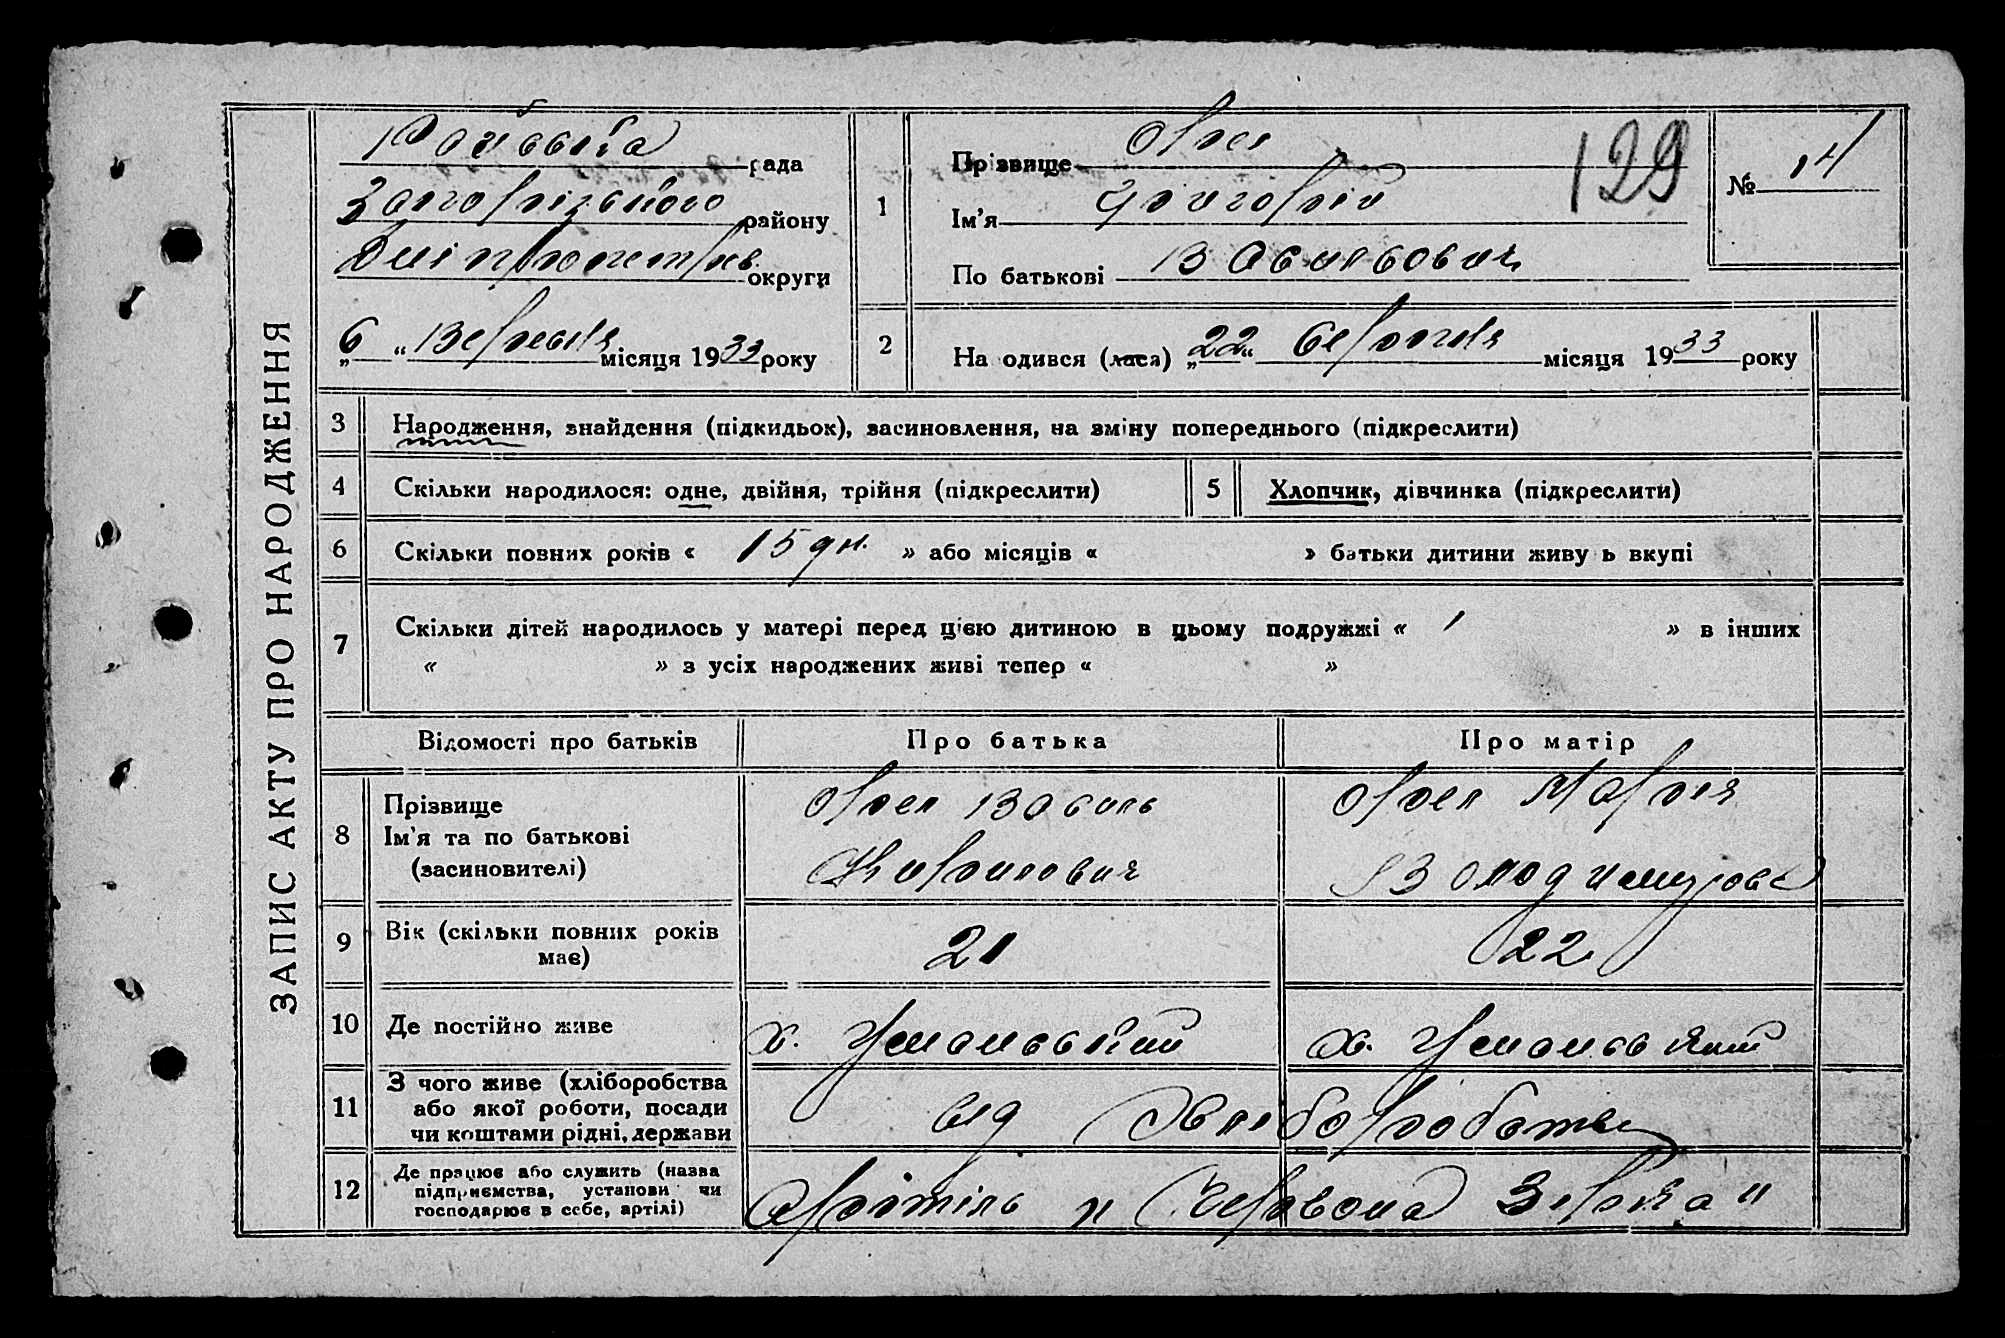 ЗАПИС АКТУ ПРО НАРОДЖЕННЯ
рада
Запорізького району
Дніпропетрів округи
„6“ Вересня місяця 1933 року
1
Прізвище Орел
Ім'я Григорій
По батькові Васильович
129
№ 14
2
На одився (лася) „22“ серпня місяця 1933 року
3 Народження, знайдення (підкидьок), засиновлення, на зміну попереднього (підкреслити)
4 Скільки народилося: одне, двійня, трійня (підкреслити)
5 Хлопчик, дівчинка (підкреслити)
6 Скільки повних років « 15 дн. » або місяців « » батьки дитини живу ь вкупі
7 Скільки дітей народилось у матері перед цією дитиною в цьому подружжі « 1 » в інших
« » з усіх народжених живі тепер « »
Відомості про батьків Про батька Про матір
8 Прізвище
Ім'я та по батькові
(засиновителі)
Орел Василь
Кирилович
Орел Марія
Володимирова
9 Вік (скільки повних років
має)
21
22
10 Де постійно живе х. Уманський х. Уманський
11 З чого живе (хліборобства
або якої роботи, посади
чи коштами рідні, держави
від Хліборобства
12 Де працює або служить (назва
підприємства, установи чи
господарює в себе, артілі)
Артіль „Червона Зірка"